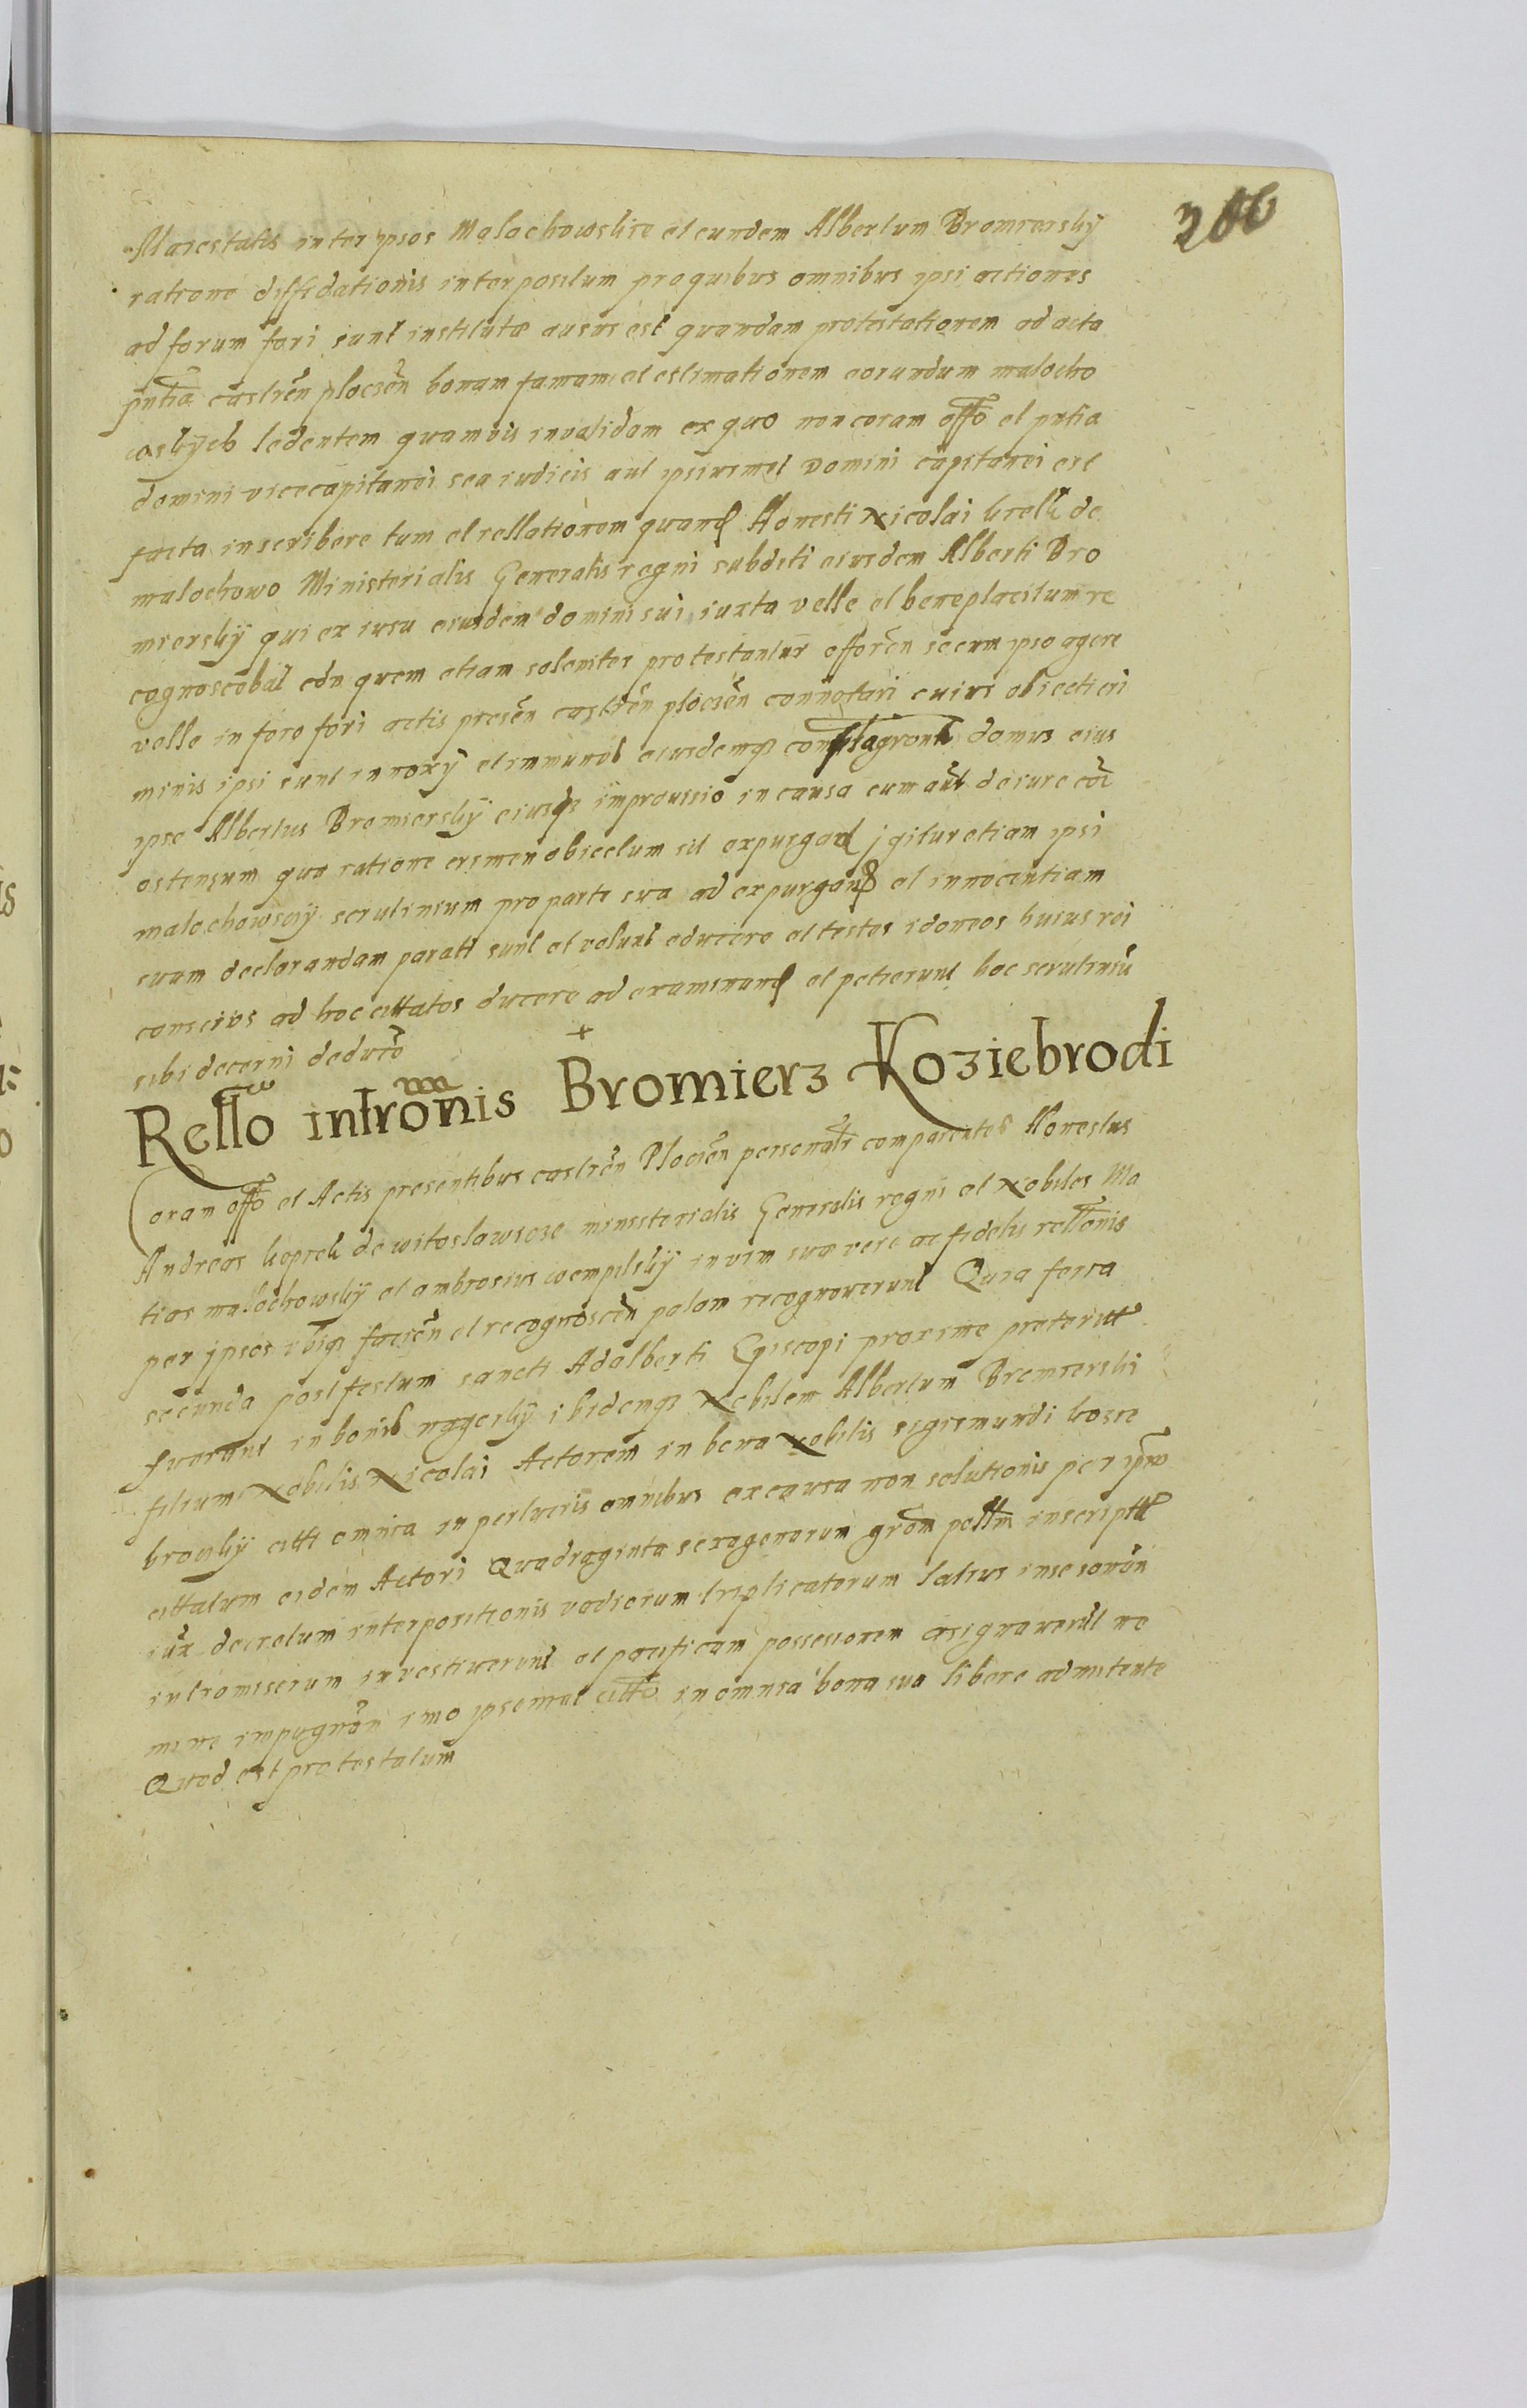 206
Maiestatis inter ipsos Malochowskie et eundem Albertum Bromierskÿ
ratione diffidationis interpositum pro quibus omnibus ipsi actiones
ad forum fori sunt institutæ ausus est quandam protestationem ad acta
pn̄tia castren̄ plocen̄ bonam famam et estimationem eorundum malocho
wskÿch ledentem quamuis inualidam ex quo non coram offō et pn̄tia
domini vicecapitanei seu iudicis aut ipsiusmet domini capitanei est
facta inscribere tum et rellationem quand Honesti Nicolai krelk de
malochowo Ministerialis Generalis regni subditi eiusdem Alberti Bro
mierskÿ qui ex iusu eiusdem domini sui iuxta velle et beneplacitum re
cognoscebat cōn quem etiam solemniter protestantur offeren̄ se cum ipso agere
velle in foro fori actis presēn castren̄ plocen̄ connotari cuius obiecti cri
minis ipsi sunt innoxÿ et immunes eiusdemqз domus eius
ipse Albertus Bromierskÿ eiusqз improuisio in causa cum aūt de iure
ostensum qua ratione crimen obiectum sit expurgand jgitur etiam ipsi
malochowscÿ scrutinium pro parte sua ad expurgand et innocentiam
suam declarandam parati sunt et volunt educere et testes idoneos huius rei
conscios ad hoc cittatos ducere ad examinand et petierunt hoc scrutiniū
sibi decerni
Rellō intrōnis Bromierз Koзiebrodi
Coram offō et Actis presentibus castren̄ Plocen̄ personal̄r comparentes Honestus
Andreas koprek de witoslawicze ministerialis Generalis regni et Nobiles Ma
tias malochowskÿ et ambrosius wempilskÿ in vim suæ veræ ac fidelis rellōnis
per ipsos ibiqз facien̄ et recognoscen̄ palam recognouerunt Quia feria
secunda post festum sancti Adalberti Episcopi proxime preterita
fuerunt in bonis ibidemqз Nobilem Albertum Bromierski
filium Nobilis Nicolai Actorem in bona Nobilis sigismundi kozie
brockÿ citti omnia in perlucris omnibus ex causa non solutionis per ipm̄
cittatum eidem Actori Quadraginta sexagenarum inscript
iux decretum interpositionis vadiorum triplicatorum latius in se sonān
intromiserun inuestiuerunt et pacificam possesionem asignauerūt ne
mine impugnān imo ipsemet cittō in omnia bona sua libere admitente
Quod est protestatum